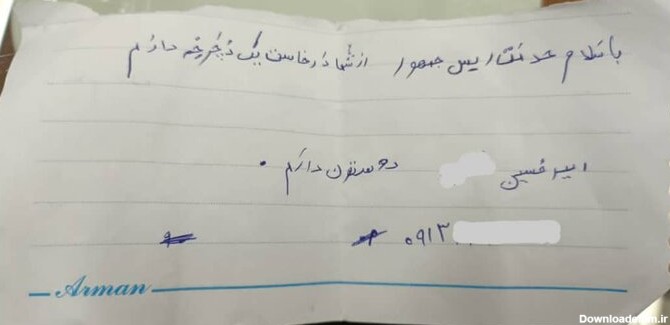 با سلام خدمت رایس جمهور از شما درخاست یک دوچرخه دارم
امیر حسین دوستون دارم .
۰۹۱۳
Arman
Downloade.m.ir